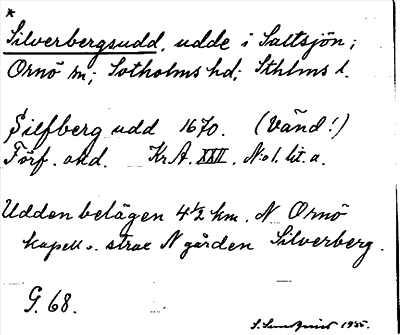 *
Silverbergsudd, udde i Saltsjön;
Ornö sn; Sotholms hd; Sthlms l.
Silfberg udd 1670. (Vänd!)
Förf. okd. Kr.A. XXII. N:o 1. lit. a.
Udden belägen 4½ km. N Ornö
kapell o. strax N gården Silverberg.
G. 68.
1935.